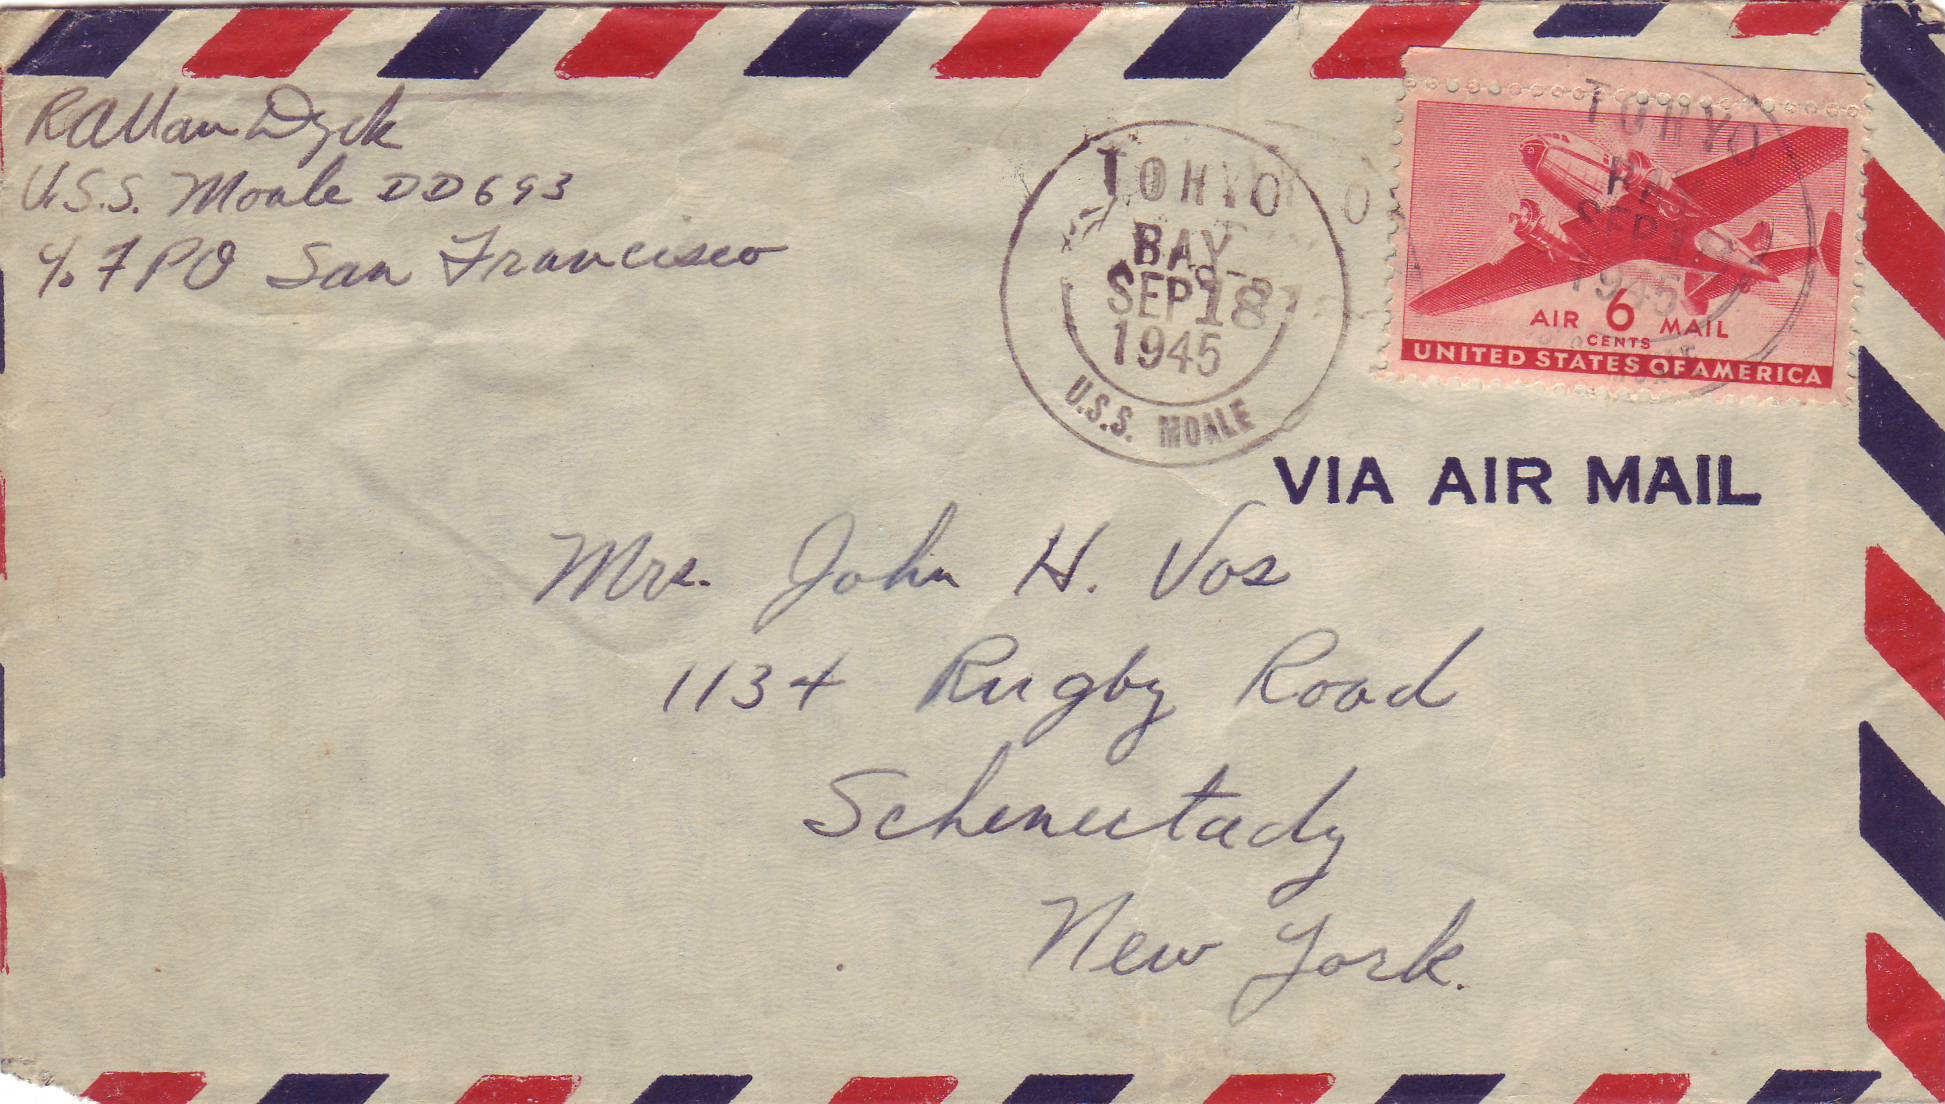 R Allan Dyck
U.S.S. Moale DD693
℅ FPO San Francisco
TOKYO
BAY
SEP 18
1945
U.S.S. MOALE
TOKYO
BAY
SEP 18
1945
AIR 6 MAIL
CENTS
UNITED STATES OF AMERICA
VIA AIR MAIL
Mrs. John H. Vos
1134 Rugby Road
Schenectady
New York.